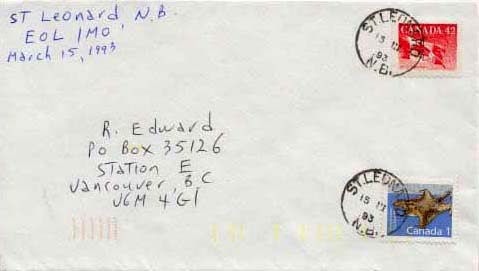 ST Leonard N.B.
EOL 1MO
March 15, 1993
ST.LEONARD
15 III
93
N.B.
CANADA 42
R. Edward
PO Box 35126
Station E
Vancouver, B C
V6M 4G1
ST.LEONARD
15 III
93
N.B.
Canada 1